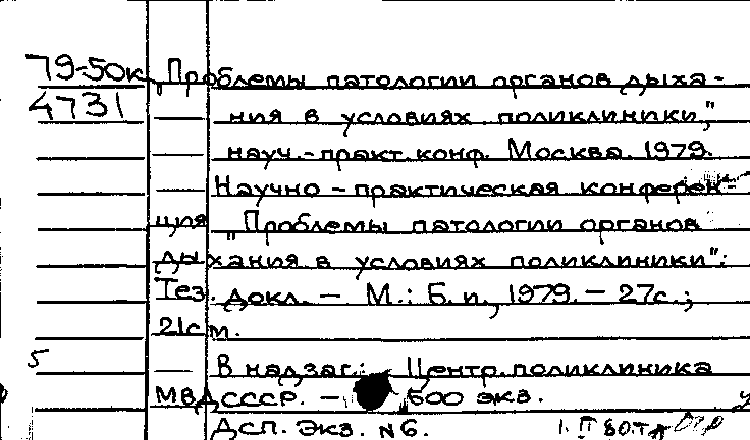 79-50к „Проблемы патологии органов дыха-
4731 ния в условиях поликлиники",
науч.-практ. конф. Москва. 1979.
Научно-практическая конферен-
ция „Проблемы патологии органов
дыхания в условиях поликлиники":
Тез. докл. — М.: Б. и., 1979. — 27с.;
21см.
5 В надзаг.: Центр. поликлиника
МВД СССР. — 500 экз.
Дсп. Экз. №6. 1. II 80